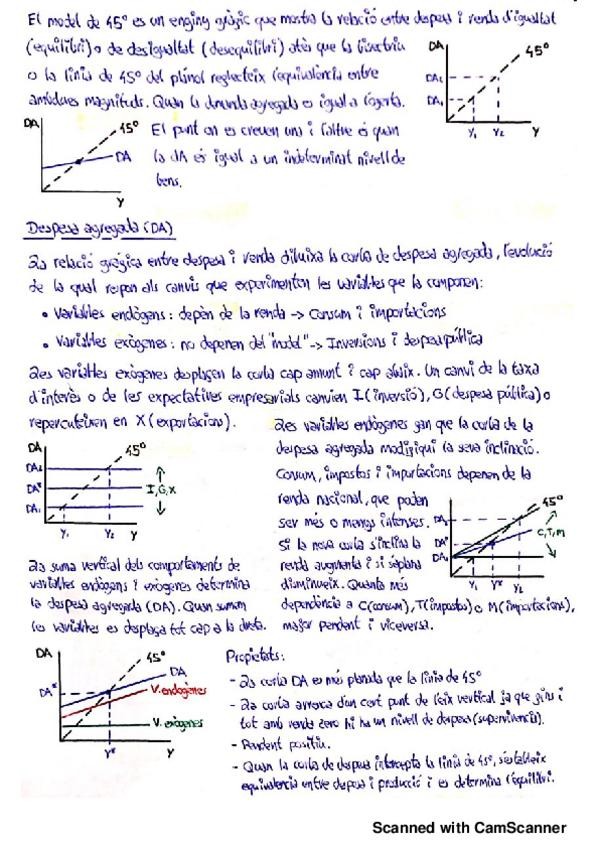 El model de 45° es un enginy gràfic que mostra la relació entre despesa i renda d'igualtat
(equilibri) o de desigualtat (desequilibri) atès que la bisectriu
o la línia de 45° del plànol reflecteix l'equivalència entre
ambdues magnituds. Quan la demanda agregada es igual a l'oferta.
DA
45°
DA₂
DA₁
Y₁ Y₂ Y
DA
45°
DA
Y
El punt on es creuen una i l'altre és quan
la DA és igual a un indeterminat nivell de
bens.
Despesa agregada (DA)
La relació gràfica entre despesa i renda dibuixa la corba de despesa agregada, l'evolució
de la qual respon als canvis que experimenten les variables que la componen:
• Variables endògens: depèn de la renda -> Consum i importacions
• Variables exògenes: no depenen del "model" -> Inversions i despesa pública
Les variables exògenes desplaçen la corba cap amunt i cap abaix. Un canvi de la taxa
d'interès o de les expectatives empresarials canvien I (inversió), G (despesa pública) o
repercuteixen en X (exportacions).
Les variables endògenes fan que la corba de la
despesa agregada modifiqui la seva inclinació.
Consum, impostos i importacions depenen de la
renda nacional, que poden
ser més o menys intenses.
Si la nova corba s'inclina la
renda augmenta i si s'aplana
disminueix. Quanta més
dependència a C (consum), T (impostos) o M (importacions),
major pendent i viceversa.
DA
45°
DA₂
DA*
DA₁
I, G, X
Y₁ Y₂ Y
45°
DA₂
DA*
DA₁
C, T, M
Y₁ Y* Y₂
La suma vertical dels comportaments de
variables endògens i exògenes determina
la despesa agregada (DA). Quan sumem
les variables es desplaça tot cap a la dreta.
DA
45°
DA
DA*
V. endogènes
V. exògenes
Y* Y
Propietats:
- La corba DA es més planada que la línia de 45°
- La corba arrenca d'un cert punt de l'eix vertical ja que fins i
tot amb renda zero hi ha un nivell de despesa (supervivència).
- Pendent positiu.
- Quan la corba de despesa intercepta la línia de 45°, s'estableix
equivalència entre despesa i producció i es determina l'equilibri.
Scanned with CamScanner